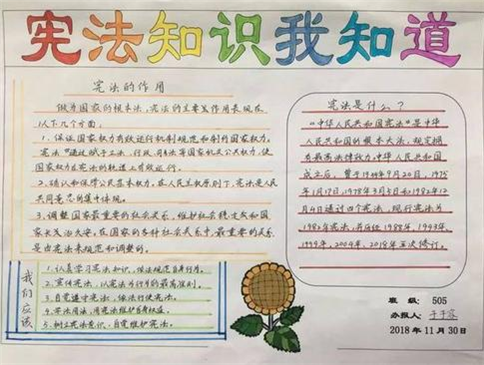 宪法知识我知道
宪法的作用
做为国家的根本法，宪法的主要作用表现在
以下几个方面：
1、保证国家权力有效运行机制规范和制约国家权力。
宪法通过赋予立法、行政、司法等国家机关公共权力，使
国家权力在宪法的轨道上有效运行。
2、确认和保障公民基本权力。在人民主权原则下，宪法是人民
共同意志的集中体现。
3、调整国家最重要的社会关系，维护社会稳定和国
家长治久安。在国家的各种社会关系中，最重要的关系
是由宪法来规范和调整的。
宪法是什么？
《中华人民共和国宪法》是中华
人民共和国的根本大法，规定拥
有最高法律效力。中华人民共和国
成立后，曾于1954年9月20日、1975
年1月17日、1978年3月5日和1982年12
月4日通过四个宪法，现行宪法为
1982年宪法，并历经1988年、1993年、
1999年、2004年、2018年五次修订。
我们应该
1、认真学习宪法知识，依法规范自身行为。
2、宣传宪法，以宪法为行为的最高准则。
3、自觉遵守宪法，依法行使宪法。
4、宪法用法，用宪法维护自身权益。
5、树立宪法意识，自觉维护宪法。
班 级: 505
办报人:
2018年11月30日